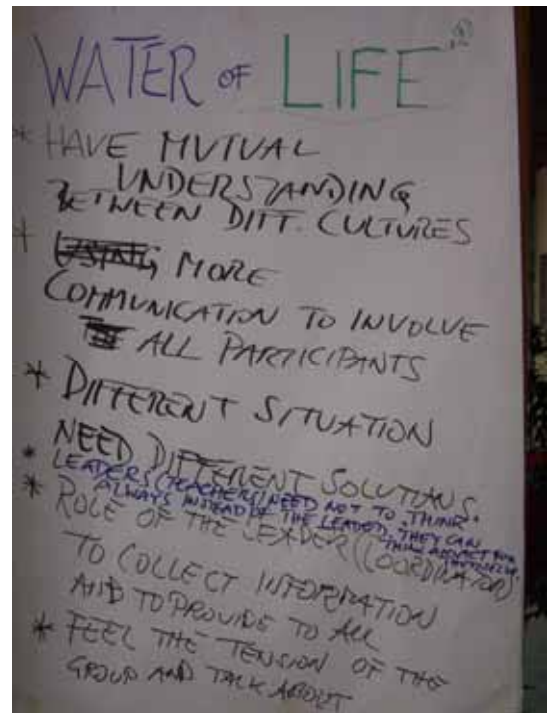 WATER OF LIFE
* HAVE MUTUAL
UNDERSTANDING
BETWEEN DIFF. CULTURES
* USING MORE
COMMUNICATION TO INVOLVE
ALL PARTICIPANTS
* DIFFERENT SITUATION
NEED DIFFERENT SOLUTIONS.
* LEADERS (TEACHERS) NEED NOT TO "THINK"
ALWAYS INSTEAD OF THE LEADED, THEY CAN
THINK AND ACT FOR
THEMSELVES.
* ROLE OF THE LEADER (COORDINATOR)
TO COLLECT INFORMATION
AND TO PROVIDE TO ALL
* FEEL THE TENSION OF THE
GROUP AND TALK ABOUT